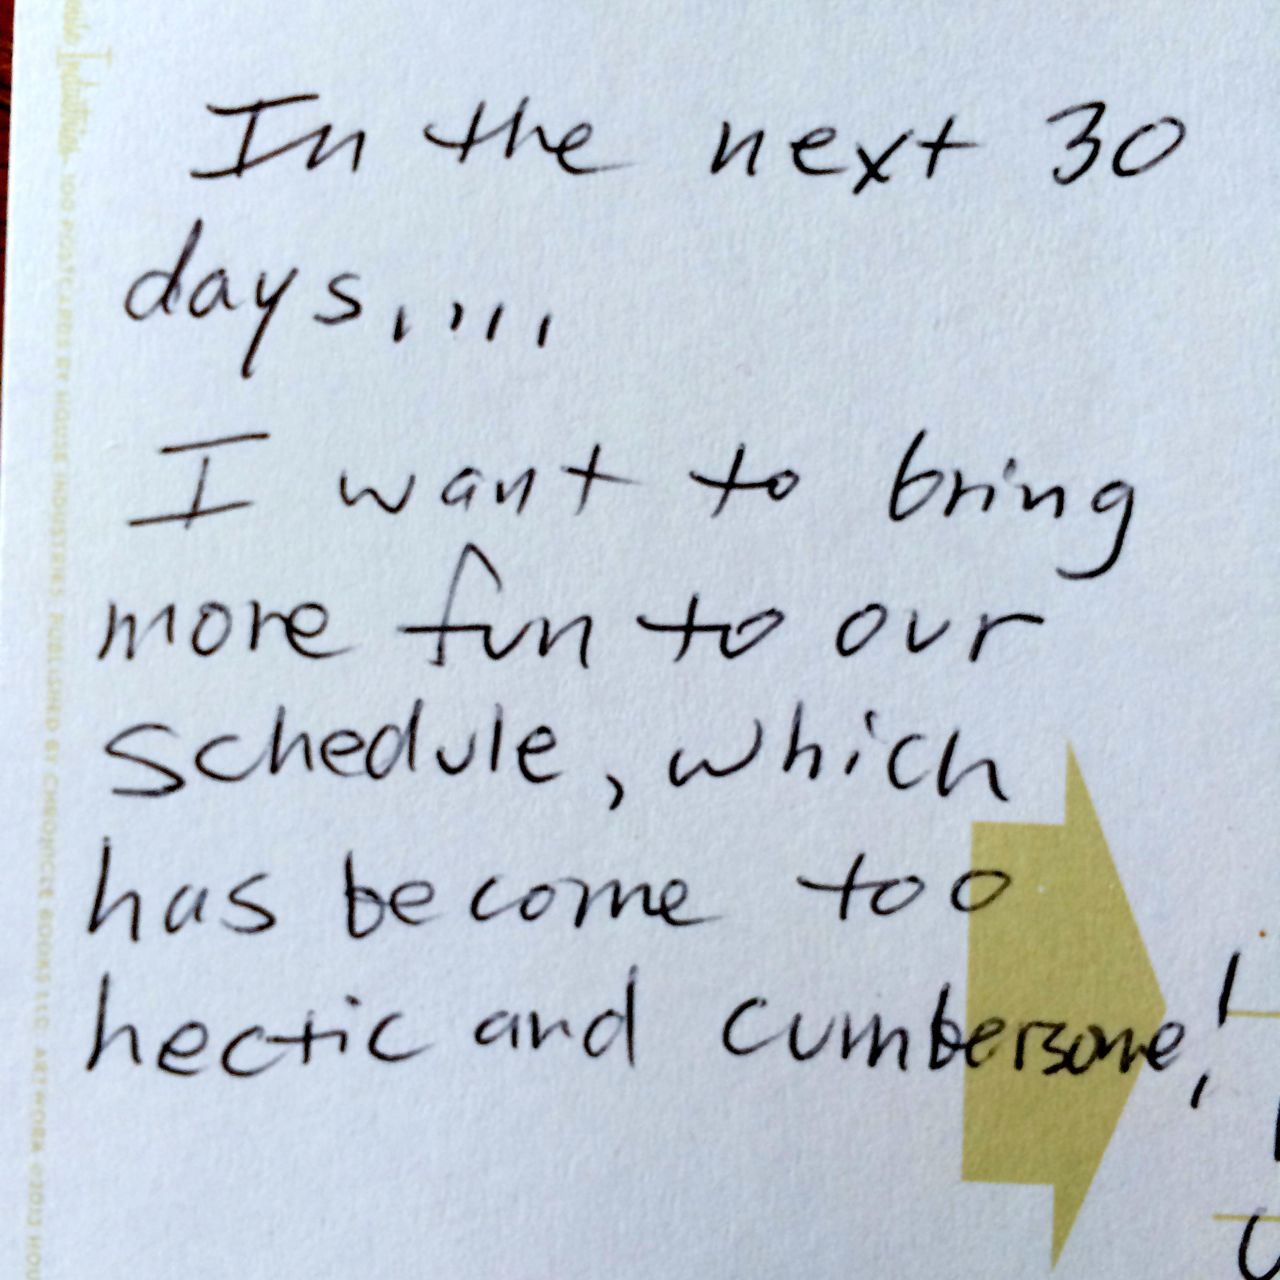 In the next 30
days....
I want to bring
more fun to our
schedule, which
has become too
hectic and cumbersome!
Industries 100 POSTCARDS BY HOUSE INDUSTRIES. PUBLISHED BY CHRONICLE BOOKS LLC. ARTWORK ©2013 HOU